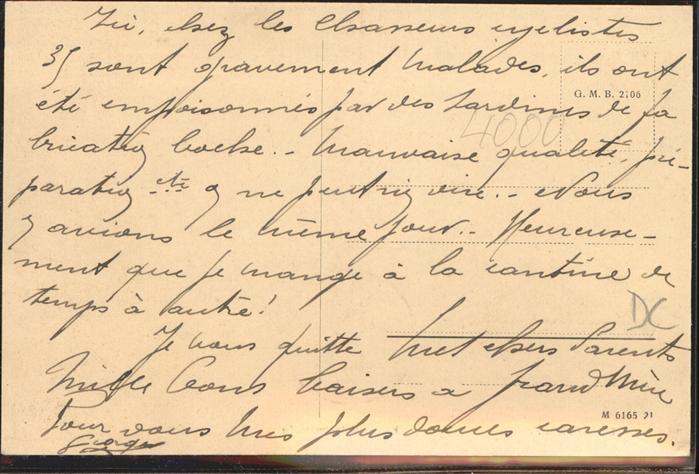 Ici, chez les Chasseurs cyclistes
35 sont gravement malades, ils ont
été empoisonnés par des sardines de fa
bricatiõ boche.. Mauvaise qualité, pré-
paratiõ etc. on ne peut rien dire.. Nous
y avions le même jour.. Heureuse-
ment que je mange à la cantine de
temps à autre!
Je vous quitte mes chers Parents
Mille bons baisers à Grand Mère
Pour vous mes plus douces caresses.
Georges
G. M. B. 2106
4000
DC
M 6165 21